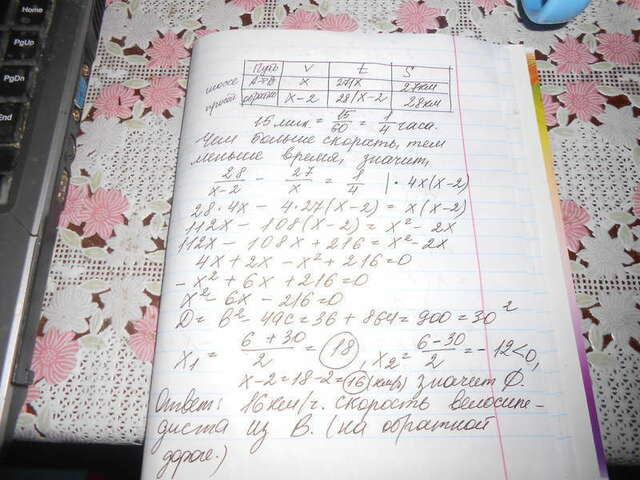 Home
PgUp
PgDn
End
Путь V t S
шоссе А→В x 27/x 27км
просёл обратно x-2 28/x-2 28км
15 мин = 15/60 = 1/4 часа.
Чем больше скорость, тем
меньше время, значит,
28/x-2 - 27/x = 1/4 |· 4x(x-2)
28·4x - 4·27(x-2) = x(x-2)
112x - 108(x-2) = x² - 2x
112x - 108x + 216 = x² - 2x
4x + 2x - x² + 216 = 0
-x² + 6x + 216 = 0
x² - 6x - 216 = 0
D = в² - 4ac = 36 + 864 = 900 = 30²
x₁ = 6 + 30/2 = 18, x₂ = 6-30/2 = -12<0,
x-2 = 18-2 = 16 (км/ч) значит ∅.
Ответ: 16 км/ч. скорость велосипе-
диста из В. (на обратной
дороге.)